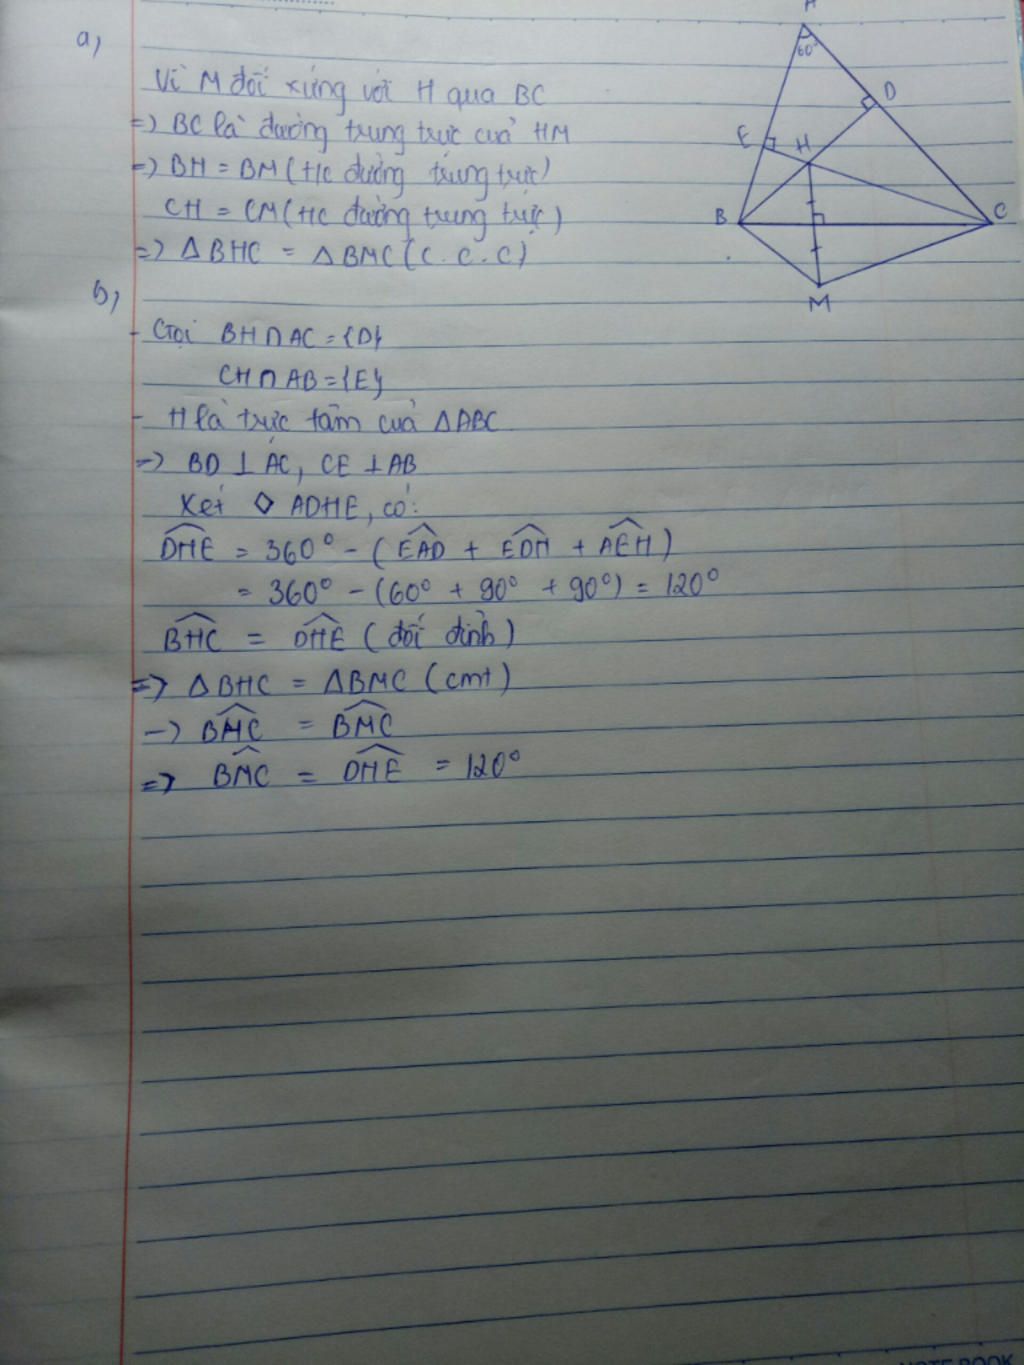 a,
Vì M đối xứng với H qua BC
=> BC là đường trung trực của HM
=> BH = BM (t/c đường trung trực)
CH = CM (t/c đường trung trực)
=> △BHC = △BMC (c.c.c)
b,
- Gọi BH ∩ AC = {D}
CH ∩ AB = {E}
- H là trực tâm của △ABC
=> BD ⊥ AC, CE ⊥ AB
Xét ◇ ADHE, có:
DHE = 360° - (EAD + EDH + AEH)
= 360° - (60° + 90° + 90°) = 120°
BHC = DHE (đối đỉnh)
=> △BHC = △BMC (cmt)
-> BMC = BMC
=> BMC = DHE = 120°
A
60°
D
E
H
B
C
M
NOTEBOOK